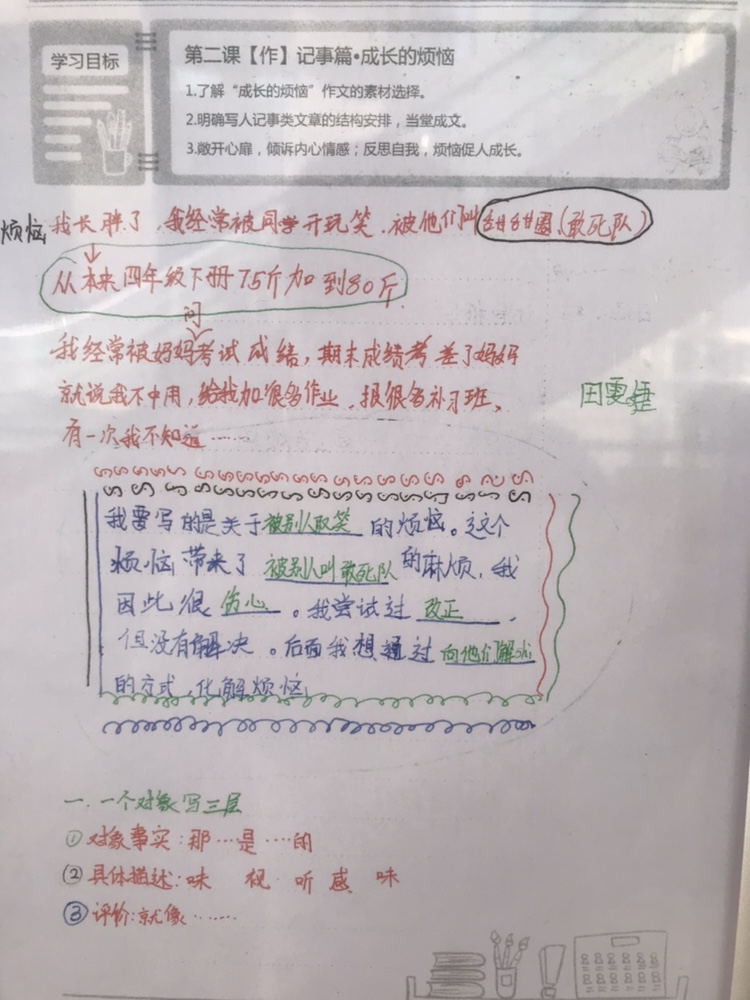 学习目标
第二课【作】记事篇•成长的烦恼
1.了解“成长的烦恼”作文的素材选择。
2.明确写人记事类文章的结构安排，当堂成文。
3.敞开心扉，倾诉内心情感；反思自我，烦恼促人成长。
烦恼 我长胖了，我经常被同学开玩笑、被他们叫甜甜圈（敢死队）
从本来四年级下册75斤加到80斤
问
我经常被妈妈考试成结，期末成绩考差了妈妈
就说我不中用，给我加很多作业、报很多补习班、
有一次我不知道……
田雯
我要写的是关于被别人取笑的烦恼。这个
烦恼带来了被别人叫敢死队的麻烦，我
因此很伤心。我尝试过改正，
但没有解决。后面我想通过向他们解
的方式，化解烦恼
一.一个对象写三层
①对象事实：那…是…的
②具体描述：味 视 听 感 味
③评价：就像……